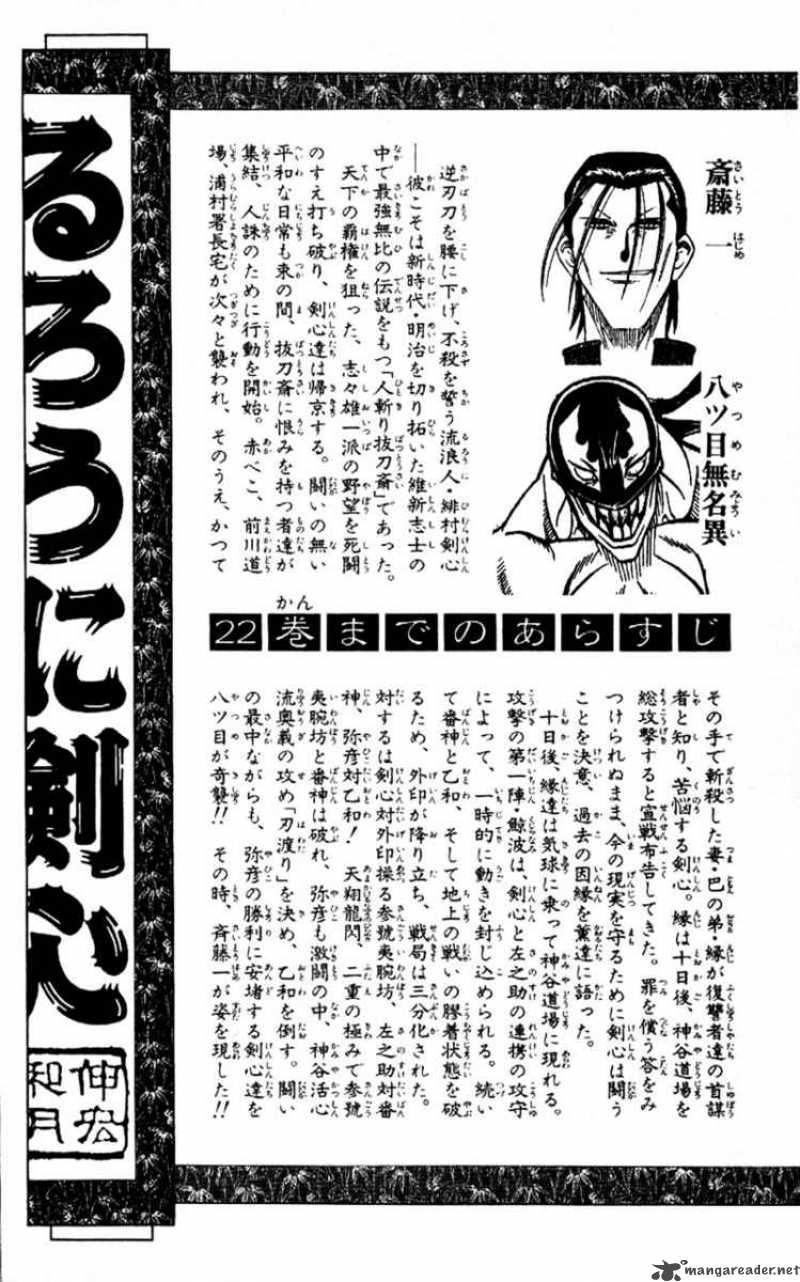 るろうに剣心
伸宏
和月
斎藤一
さいとうはじめ
八ツ目無名異
やつめむみょうい
逆刃刀を腰に下げ、不殺を誓う流浪人・緋村剣心
──彼こそは新時代・明治を切り拓いた維新志士の
中で最強無比の伝説をもつ「人斬り抜刀斎」であった。
天下の覇権を狙った、志々雄一派の野望を死闘
のすえ打ち破り、剣心達は帰京する。闘いの無い
平和な日常も束の間、抜刀斎に恨みを持つ者達が
集結、人誅のために行動を開始。赤べこ、前川道
場、浦村署長宅が次々と襲われ、そのうえ、かつて
22巻までのあらすじ
かん
その手で斬殺した妻・巴の弟・縁が復讐者達の首謀
者と知り、苦悩する剣心。縁は十日後、神谷道場を
総攻撃すると宣戦布告してきた。罪を償う答をみ
つけられぬまま、今の現実を守るために剣心は闘う
ことを決意、過去の因縁を薫達に語った。
十日後、縁達は気球に乗って神谷道場に現れる。
攻撃の第一陣・鯨波は、剣心と左之助の連携の攻守
によって、一時的に動きを封じ込められる。続い
て番神と乙和、そして地上の戦いの膠着状態を破
るため、外印が降り立ち、戦局は三分化された。
対するは剣心対外印操る参號夷腕坊、左之助対番
神、弥彦対乙和！ 天翔龍閃、二重の極みで参號
夷腕坊と番神は破れ、弥彦も激闘の中、神谷活心
流奥義の攻め「刃渡り」を決め、乙和を倒す。闘い
の最中ながらも、弥彦の勝利に安堵する剣心達を
八ツ目が奇襲!! その時、斉藤一が姿を現した!!
mangareader.net